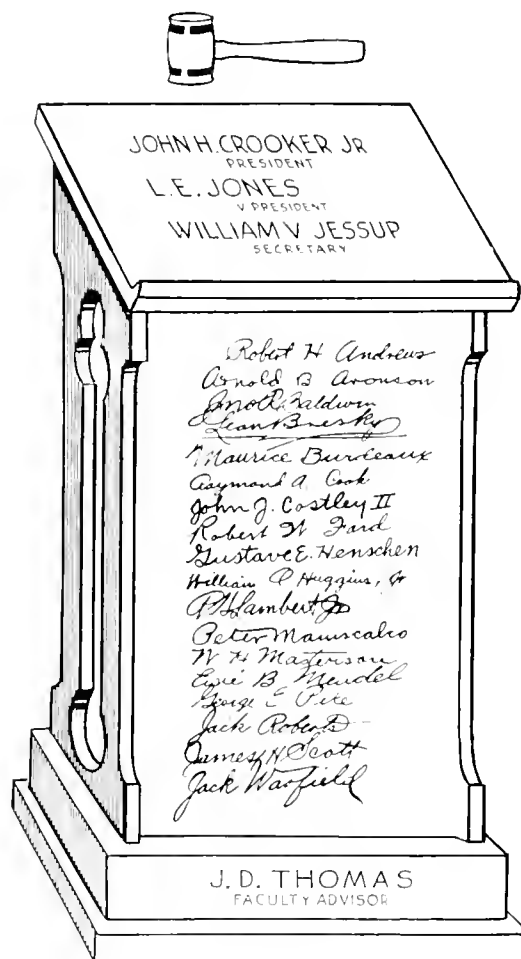 JOHN H. CROOKER JR
PRESIDENT
L. E. JONES
V PRESIDENT
WILLIAM V JESSUP
SECRETARY
Robert H Andrews
Arnold B Aronson
Baldwin
Leon Bresky
Maurice Burdeaux
Raymond A Cook
John J. Costley II
Robert W Ford
Gustave E. Henschen
William P Huggins, Jr
Lambert Jr
Peter Maniscalco
W H Masterson
B Mendel
George E Pike
Jack Roberts
James H Scott
Jack Warfield
J. D. THOMAS
FACULTY ADVISOR